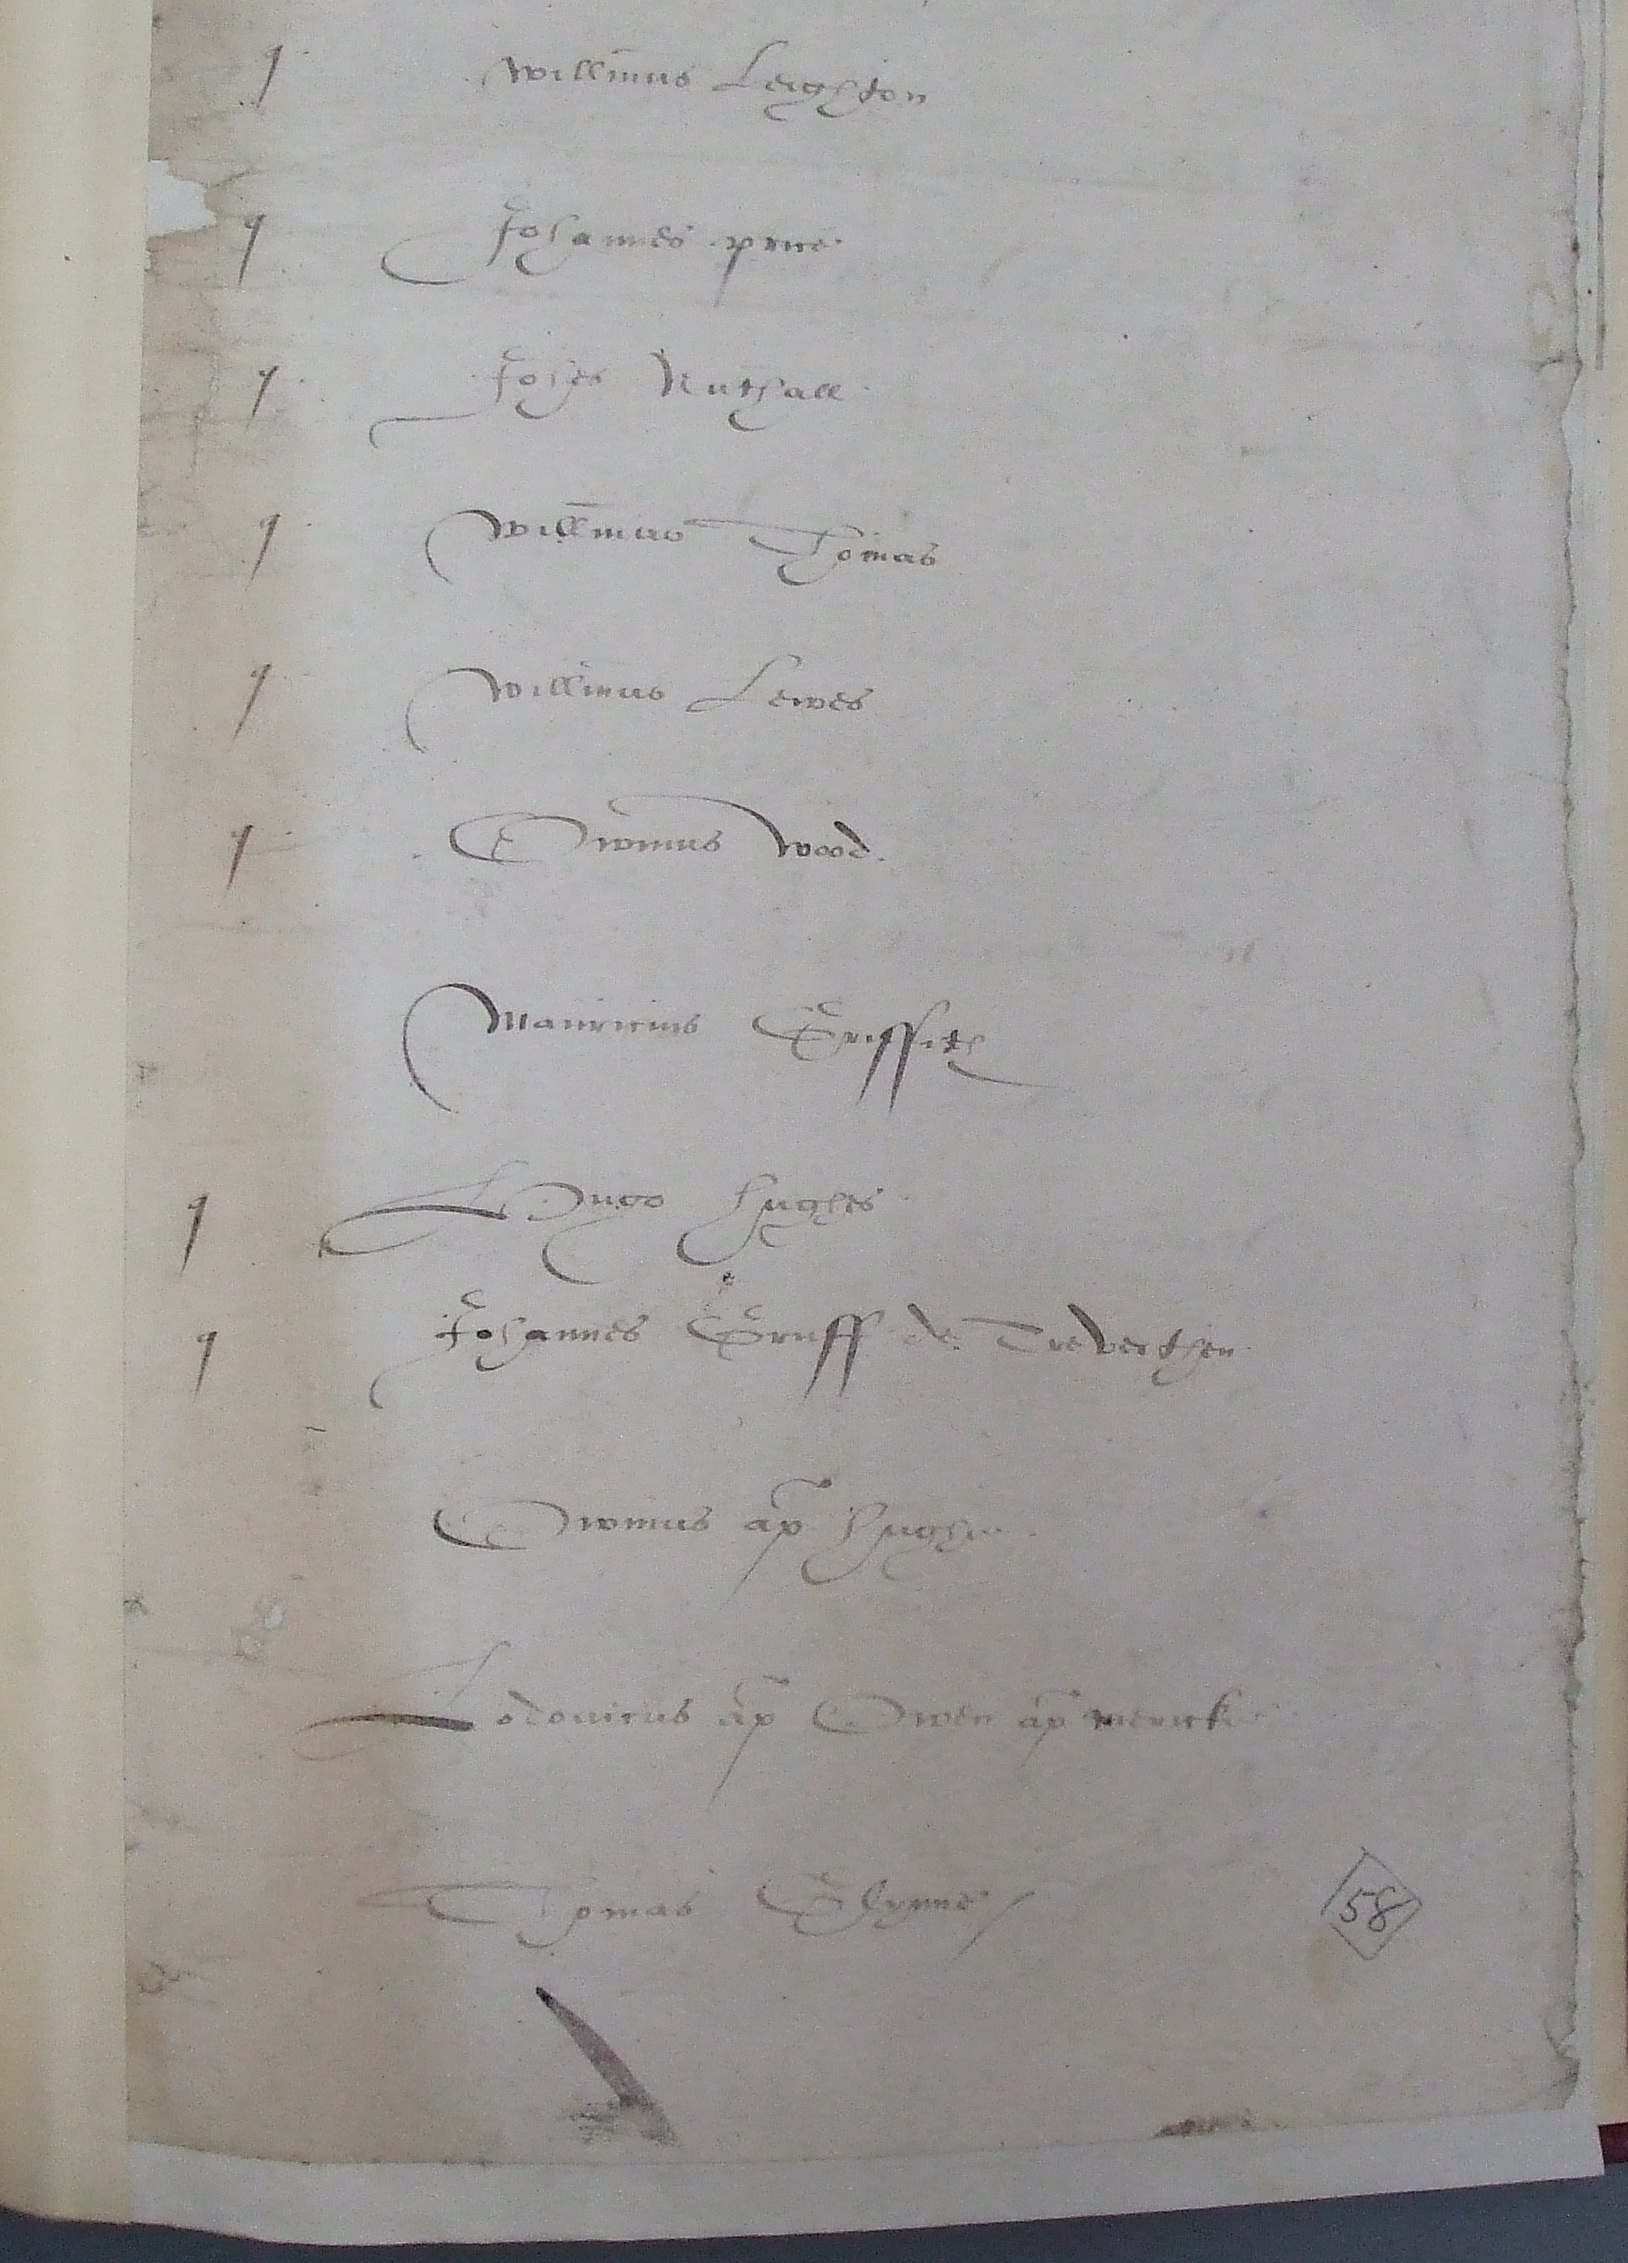 q Willimus Leighton
q Johannes pme
q Johes Nuthall
q Willmus Thomas
q Willimus Lewes
q Owinus Wood
Mauricius Griffith
q Hugo Hughes
q Johannes Gruff de Treverthen
Owinus ap Hughe
Lodovicus ap Owen ap Merick
Thomas Glynne
58